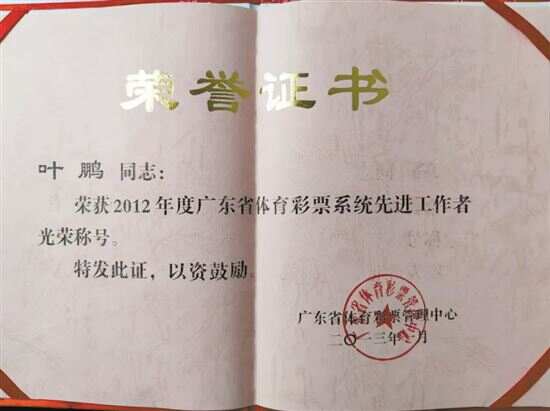 荣誉证书
叶鹏 同志：
荣获2012年度广东省体育彩票系统先进工作者
光荣称号。
特发此证，以资鼓励。
广东省体育彩票管理中心
二〇一三年 月